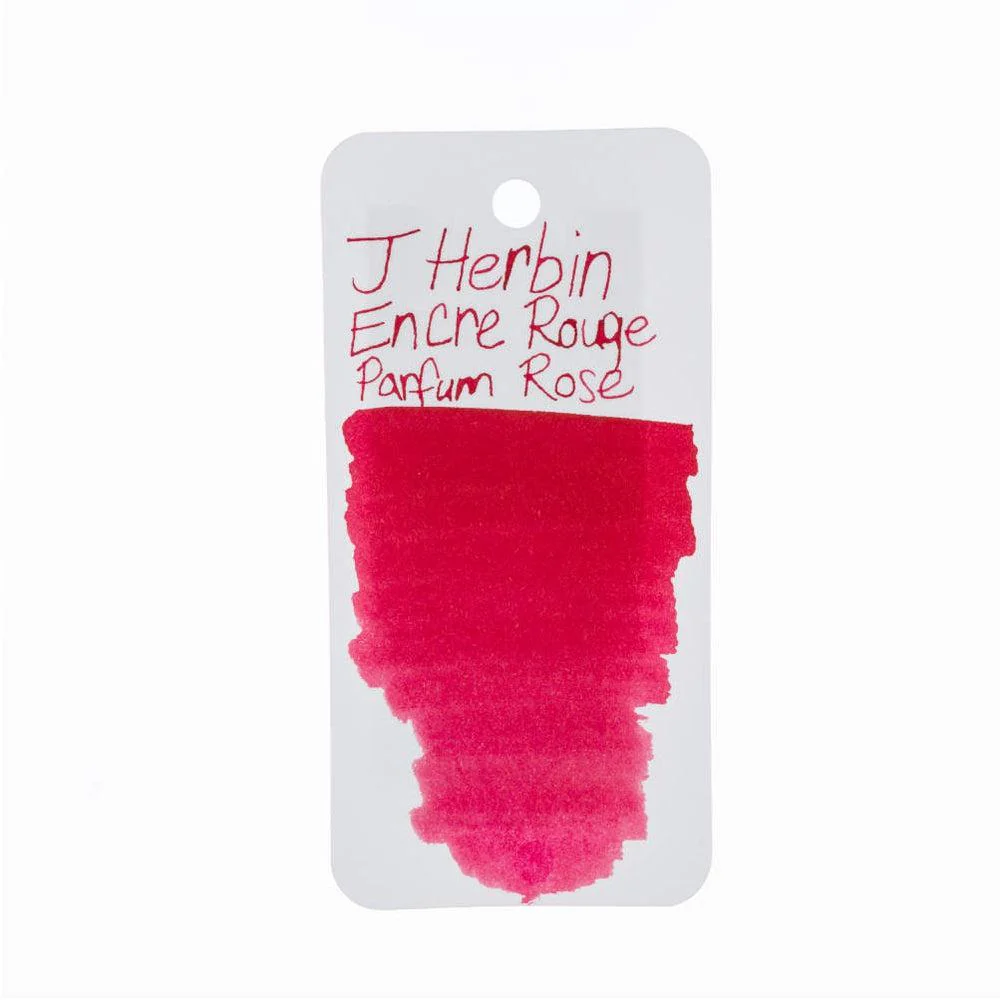 J Herbin
Encre Rouge
Parfum Rose